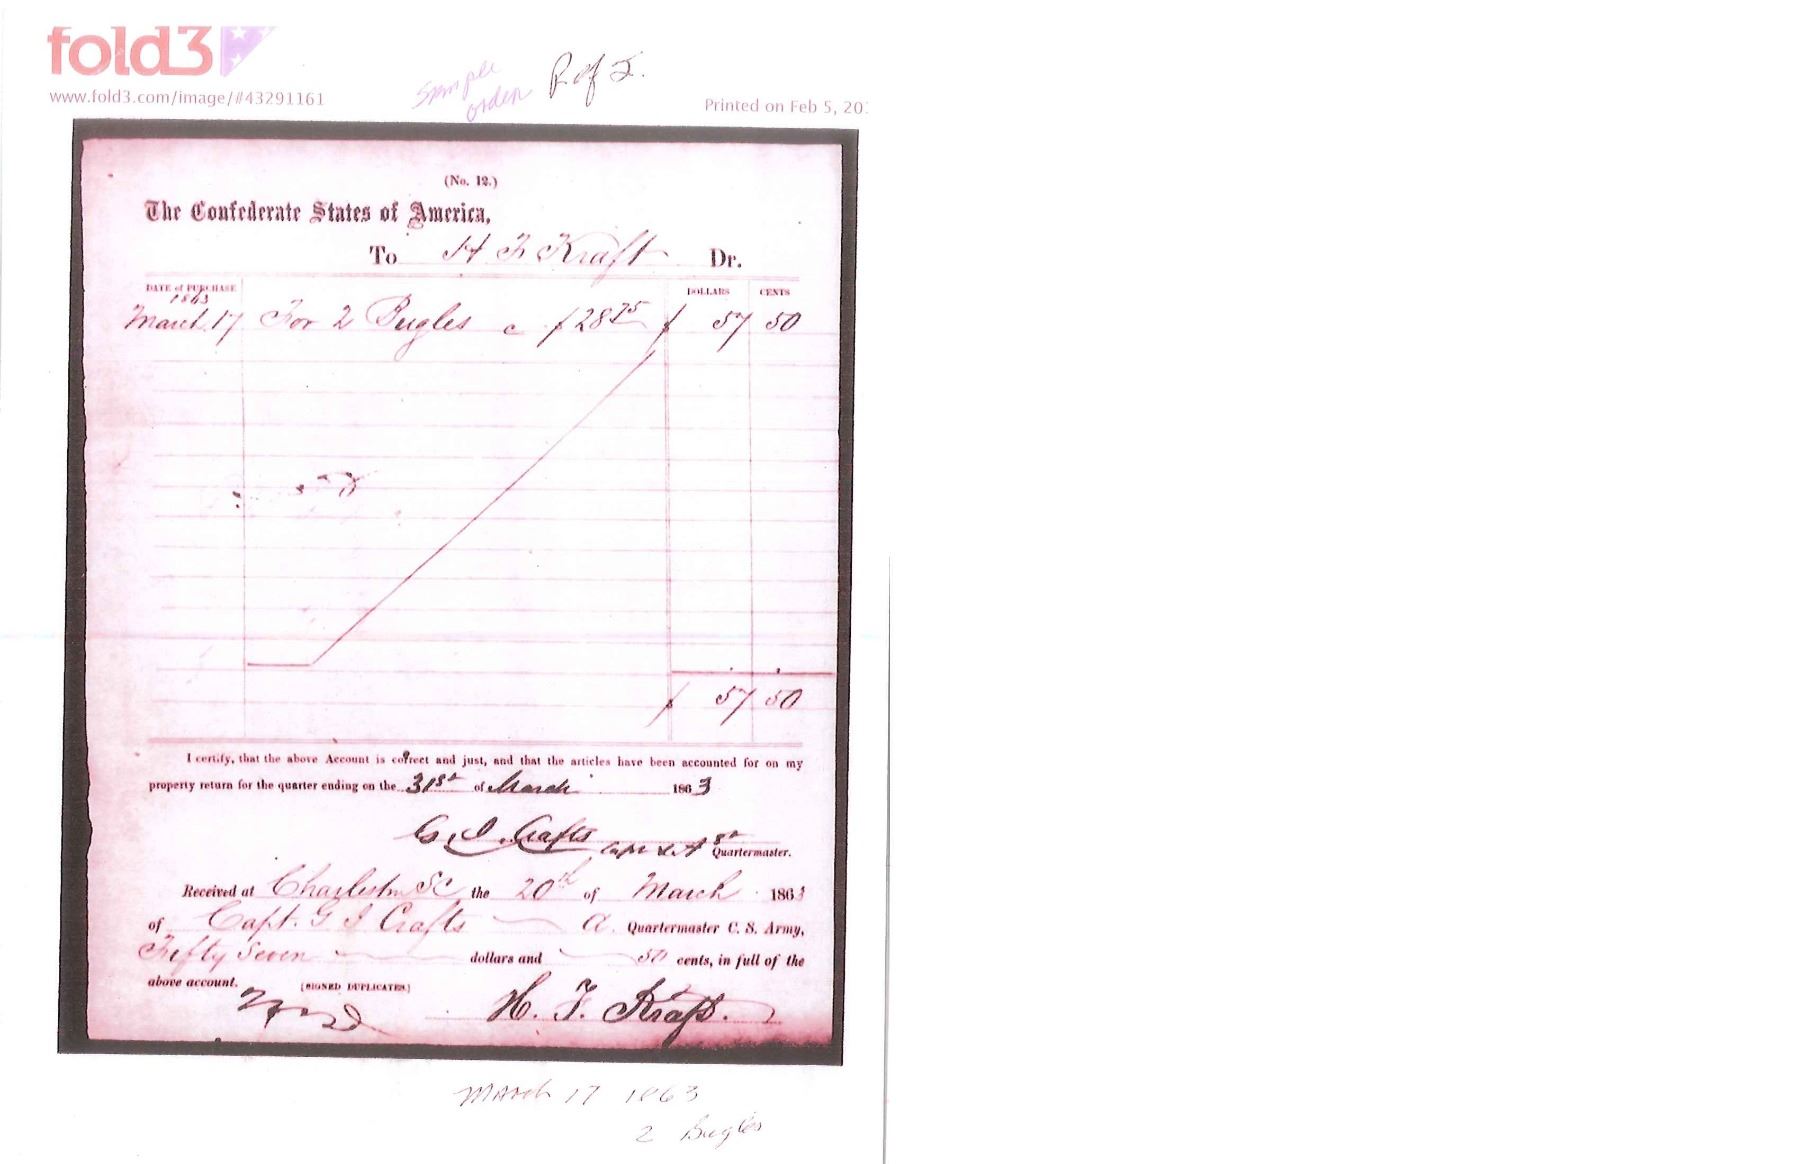 fold3
www.fold3.com/image/#43291161
Sample
order
Ref 2.
Printed on Feb 5, 20
(No. 12.)
The Confederate States of America,
To H F Kraft Dr.
DATE of PURCHASE DOLLARS CENTS
1863
March 17 For 2 Bugles $28 75 $ 57 50
$ 57 50
I certify, that the above Account is correct and just, and that the articles have been accounted for on my
property return for the quarter ending on the 31st of March 1863
G. I. Crafts Capt & A Quartermaster.
Received at Charleston SC the 20th of March 1863
of Capt. G I Crafts A. Quartermaster C. S. Army,
Fifty Seven dollars and 50 cents, in full of the
above account. [SIGNED DUPLICATES]
H. F. Kraft.
March 17 1863
2 Bugles